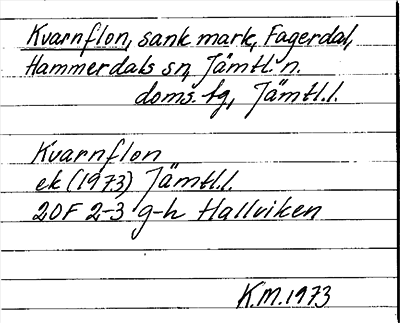 Kvarnflon, sank mark, Fagerdal,
Hammerdals sn, Jämtl. n.
doms. tg, Jämtl.l.
Kvarnflon
ek (1973) Jämtl.l.
20F 2-3 g-h Hallviken
K.M.1973